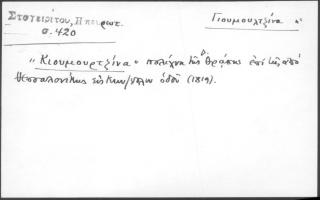 Στογειρίτου, Ἠπειρωτ.
σ. 420
Γιουμουλτζίνα
"Κιουμουρτζίνα" πολίχνη τῆς Θράκης ἐπὶ τῆς ἀπὸ
Θεσσαλονίκης εἰς Κων/πολιν ὁδοῦ (1819).